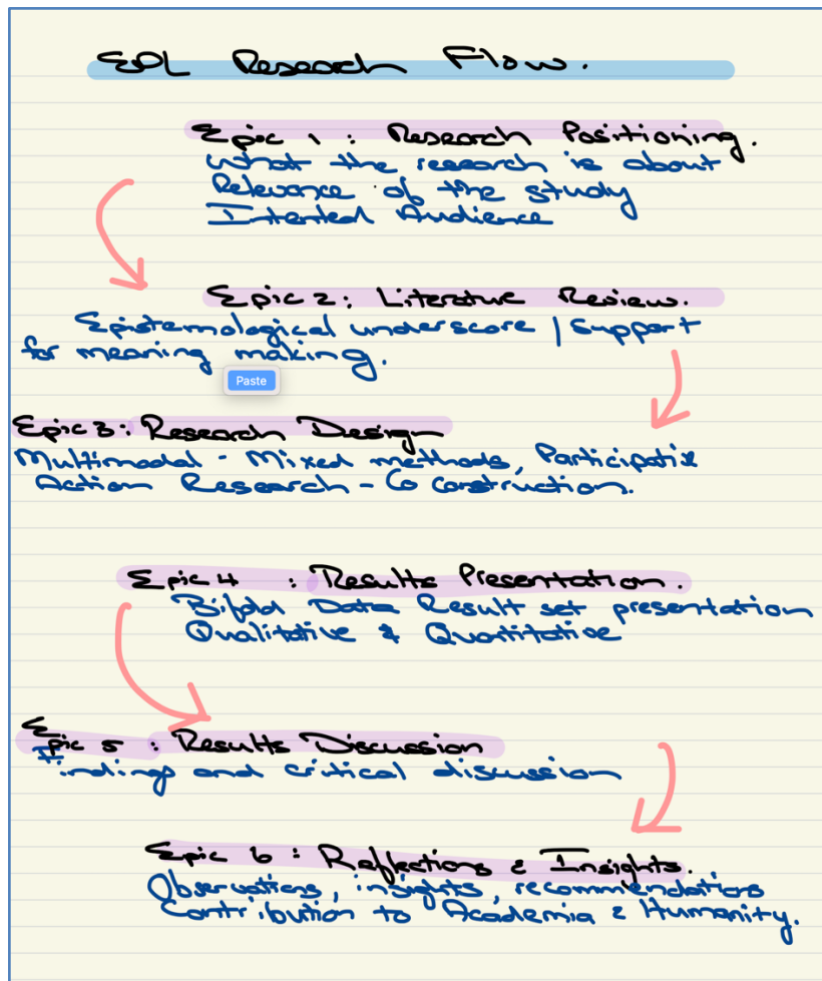 EPL Research Flow.
Epic 1 : Research Positioning.
What the research is about
Relevance of the study
Intented Audience
Epic 2: Literature Review.
Epistemological underscore / Support
for meaning making.
Paste
Epic 3: Research Design
Multimodal - Mixed methods, Participative
Action Research - Co Construction.
Epic 4 : Results Presentation.
Bifold Data Result set presentation
Qualitative & Quantitative
Epic 5 : Results Discussion
Findings and critical discussion
Epic 6 : Reflections & Insights.
Observations, insights, recommendations
Contribution to Academia & Humanity.